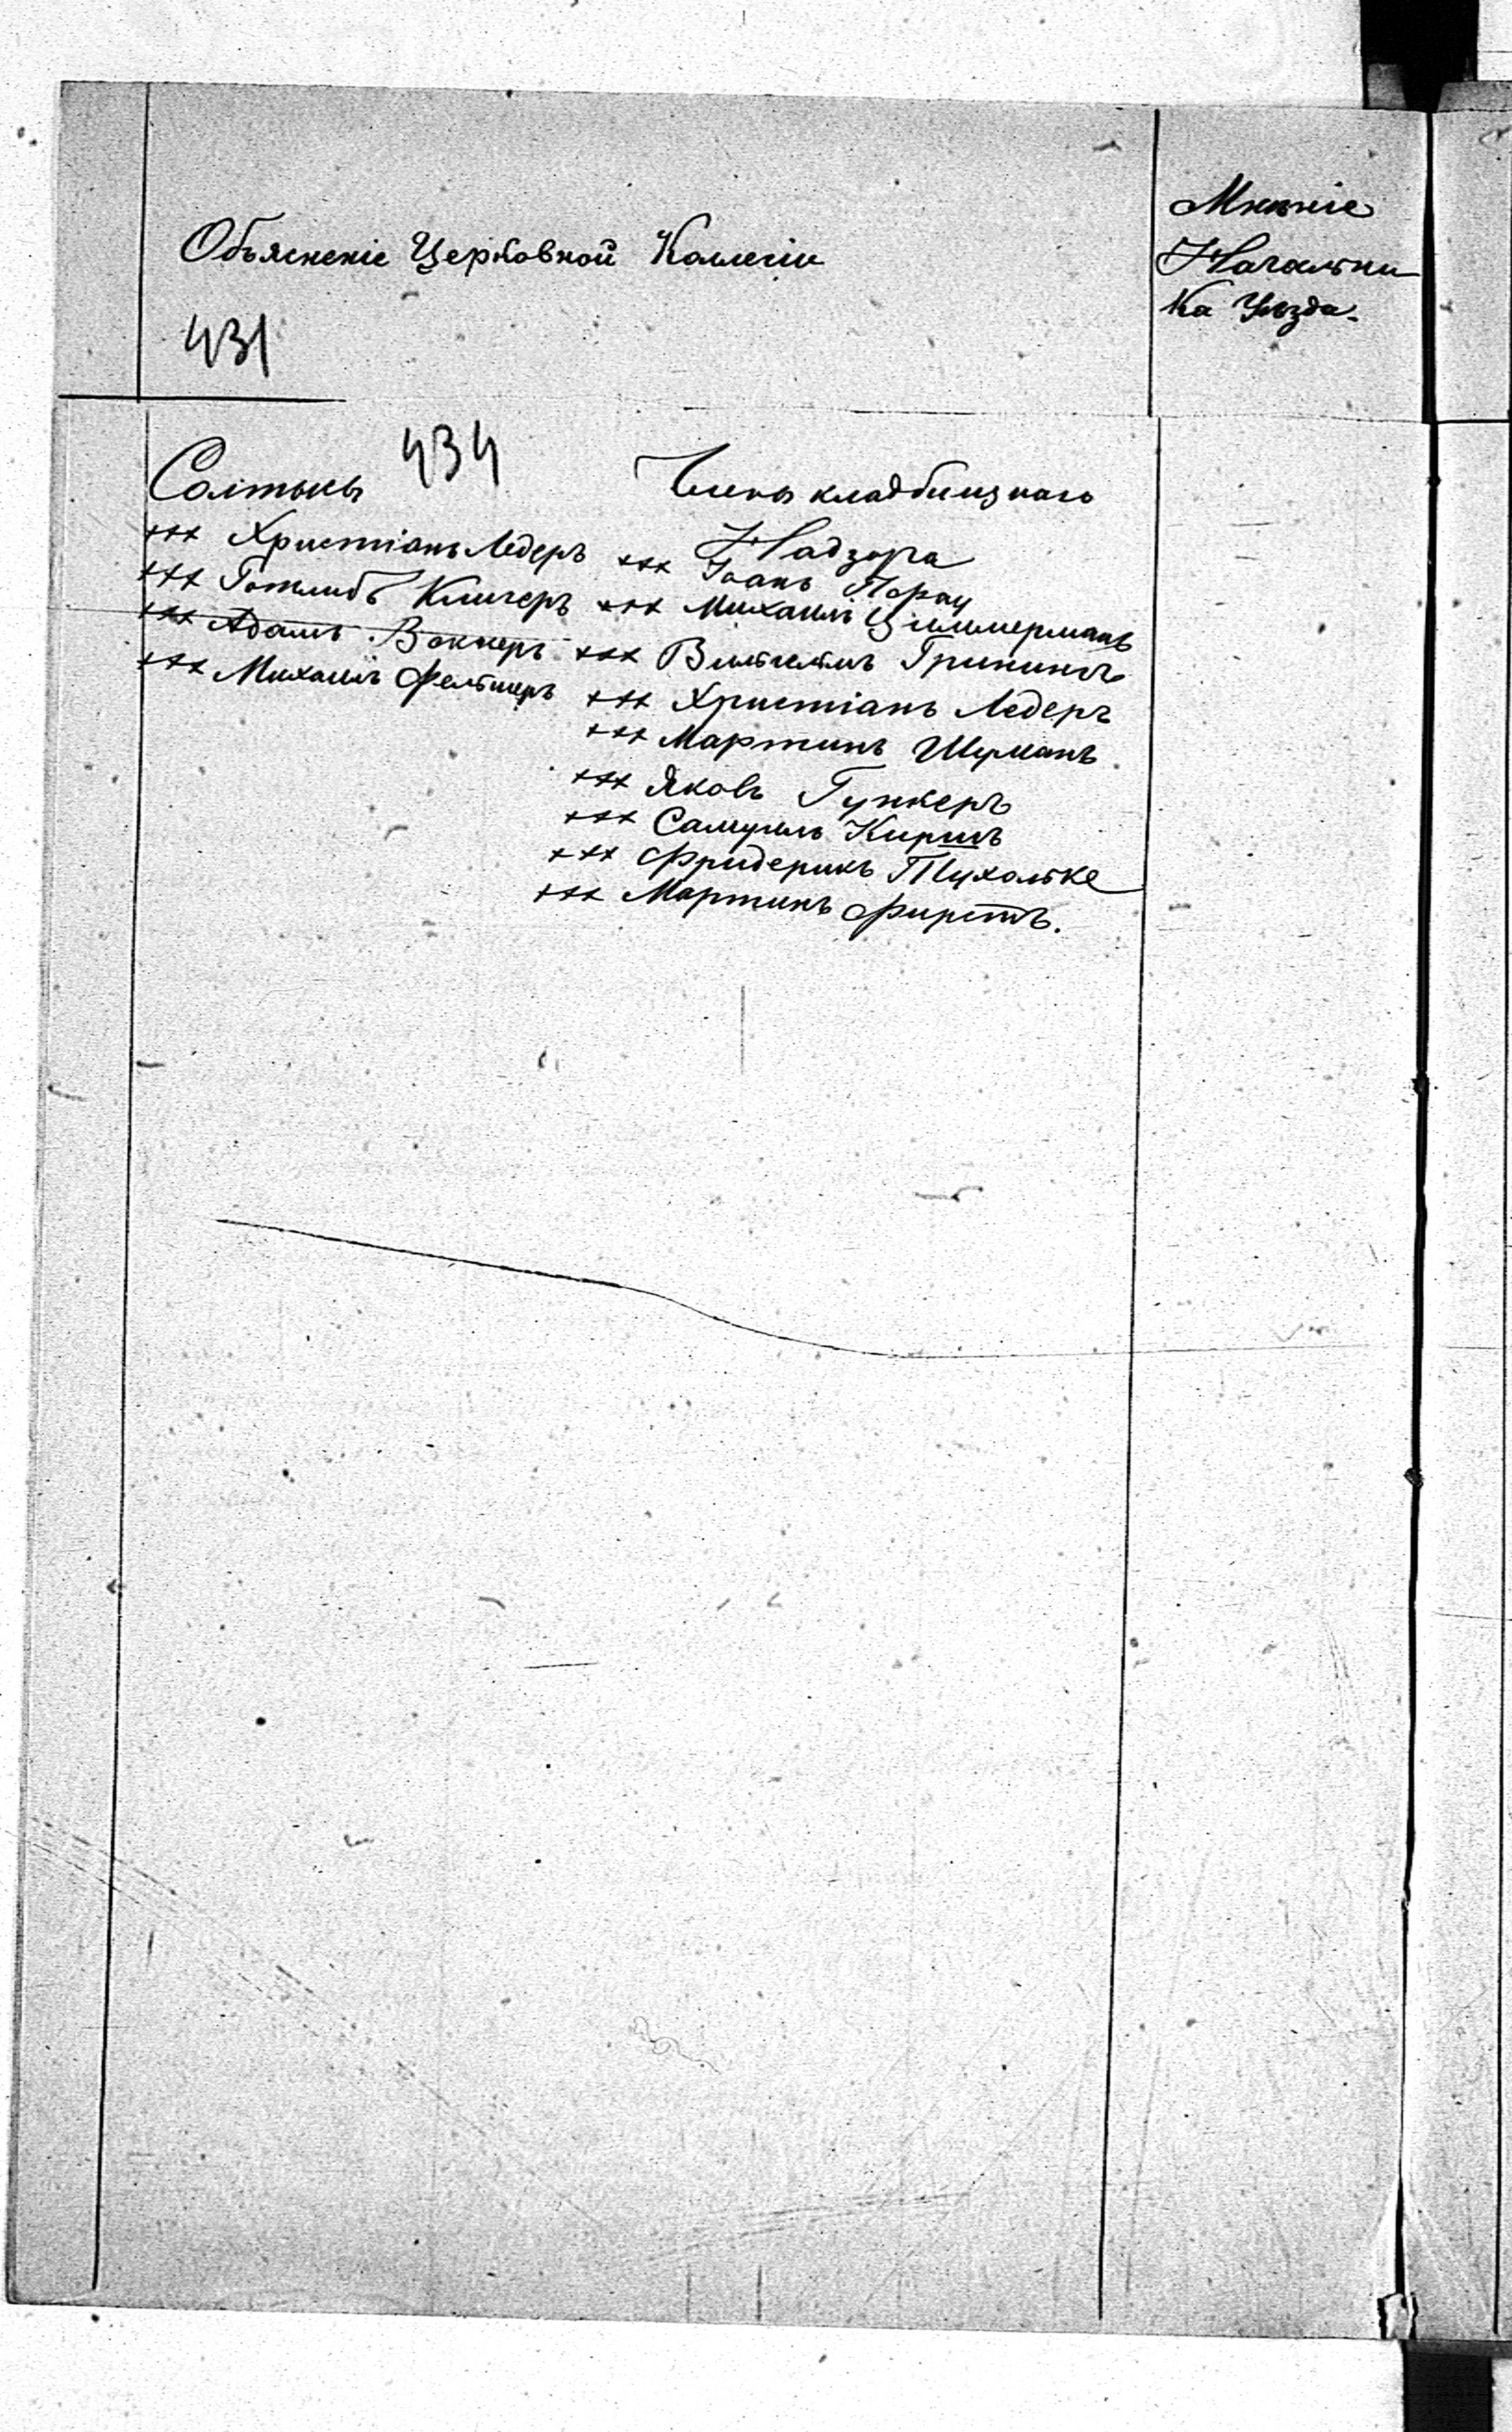 Объясненіе Церковной Коллегіи
431
Мнѣніе
Начальни
ка Уѣзда.
434
Солтысы
+++ Христіанъ Ледеръ
+++ Готлибъ
+++ Адамъ
+++ Михаилъ
Члены кладбищнаго
Надзора
+++ Іоанъ
+++ Михаилъ Циммерманъ
+++ Вильгельмъ
+++ Христіанъ Ледеръ
+++ Мартинъ Шуманъ
+++ Яковъ Гункеръ
+++ Самуилъ Киршъ
+++ Фридерикъ Тухольке
+++ Мартинъ Фирстъ.